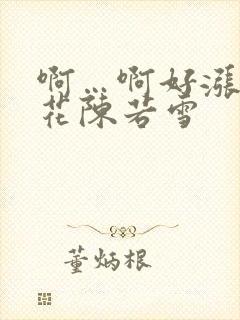 啊…啊好漲
花陳若雪
董炳根